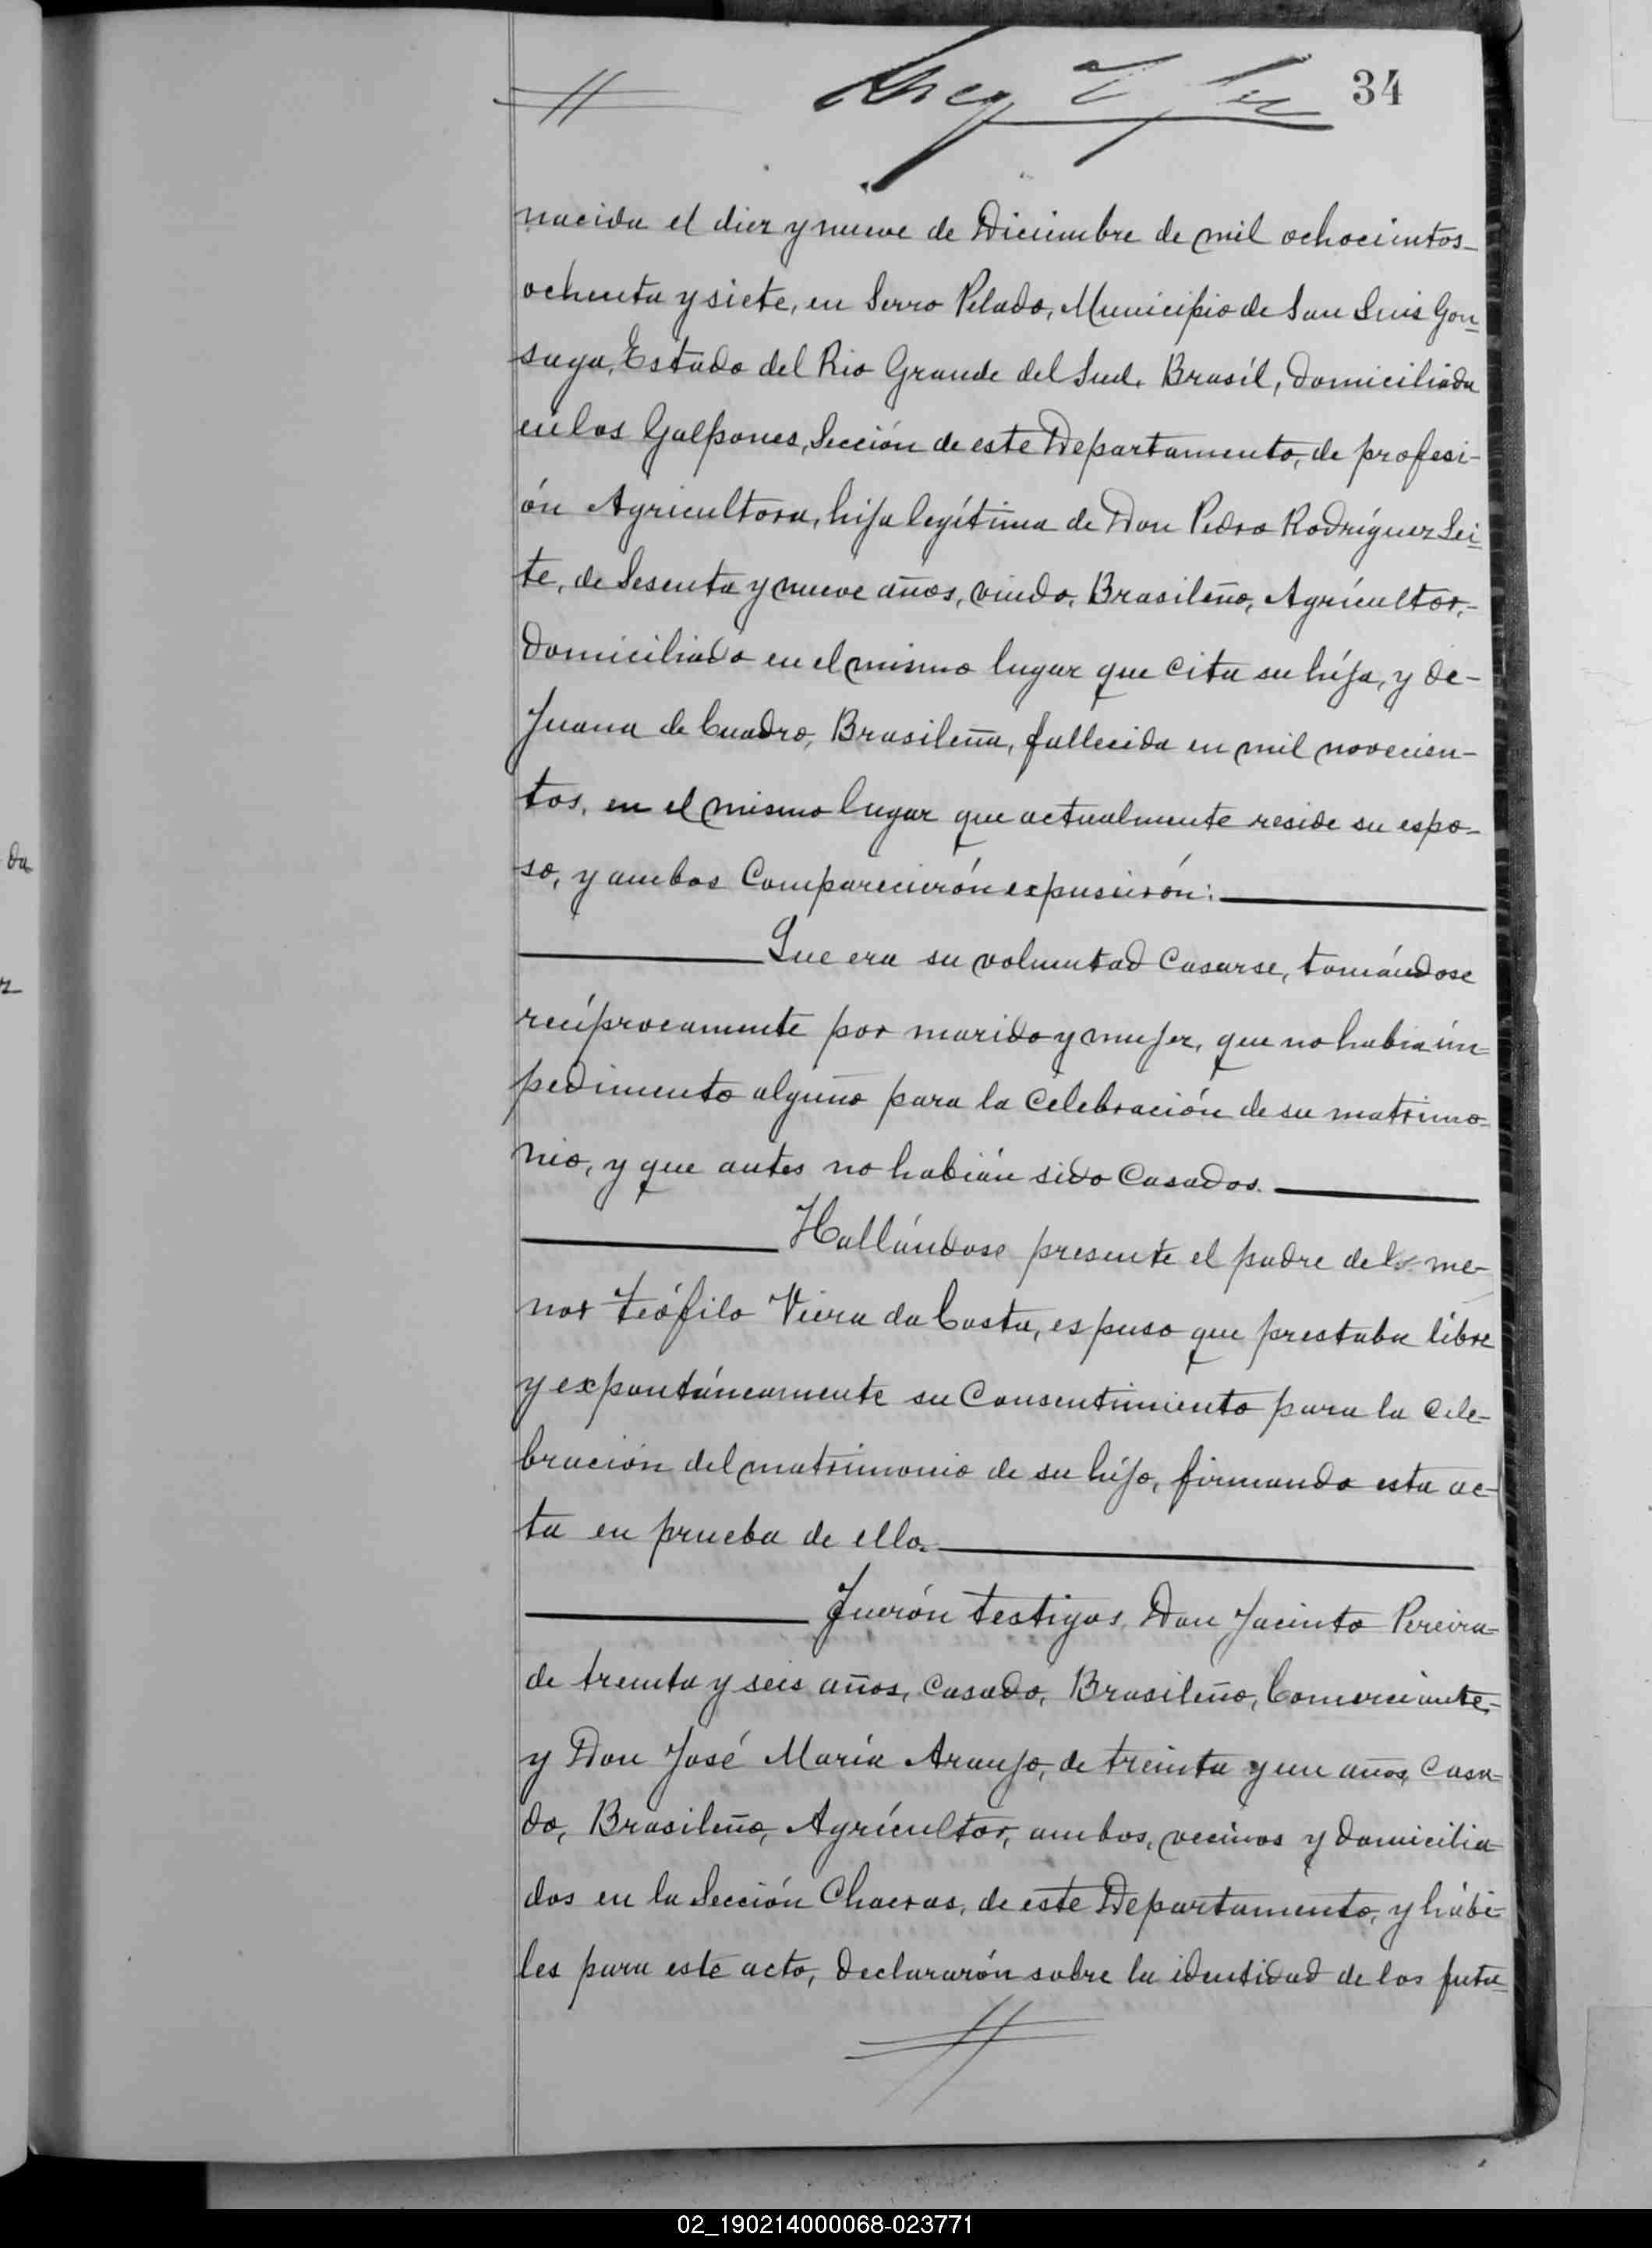 34
nacida el diez y nueve de Diciembre de mil ochocientos-
ochenta y siete, en Serro Pelado, Municipio de San Luis Gon
saga, Estado del Rio Grande del Sud. Brasíl, domiciliada
en los Galpones, Sección de este Departamento, de profesi-
ón Agricultora, hija legítima de Don Pedro Rodríguez Lei
te, de Sesenta y nueve años, viudo, Brasileño, Agrícultor,-
domiciliado en el mismo lugar que cita su híja, y de-
Juana de Cuadro, Brasileña, fallecida en mil novecien-
tos, en el mismo lugar que actualmente reside su espo-
so, y ambos Comparecierón expusierón:
Que era su voluntad Casarse, tomándose
recíprocamente por marido y mujer, que no habia im-
pedimento alguno para la Celebración de su matrimo-
nio, y que antes no habián sido Casados.
Hallándose presente el padre del me-
nor Teófilo Viera da Costa, espuso que prestaba líbre
y expontáneamente su Consentimiento para la Cele-
bración del matrimonio de su híjo, firmando esta ac-
ta en prueba de ello.
Fuerón testigos, Don Jacinto Pereira-
de treinta y seis años, Casado, Brasileño, Comerciante,-
y Don José María Araujo, de treinta y un años, Casa-
do, Brasileño, Agrícultor, ambos, vecinos y domicilia-
dos en la Sección Chacras, de este Departamento, y hábi-
les para este acto, declararón sobre la identidad de los futu-
da
z
02_190214000068-023771